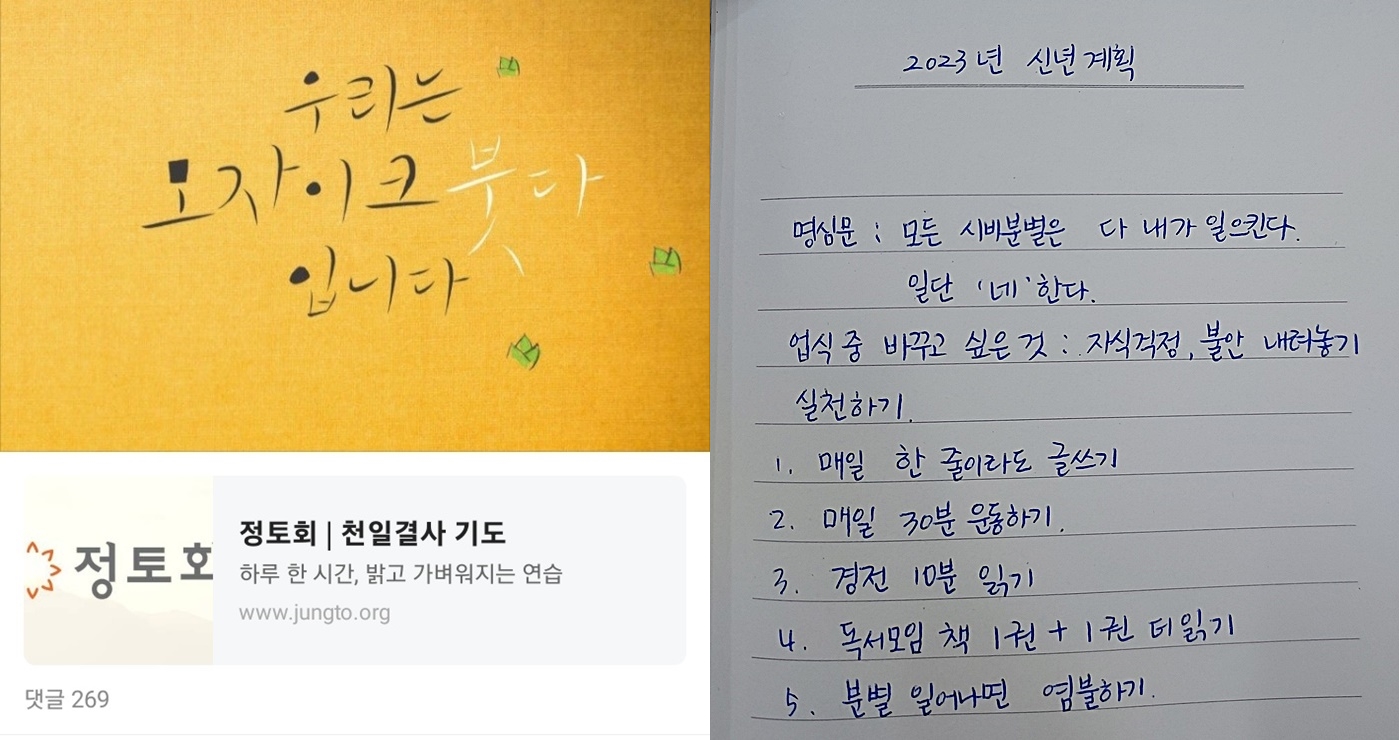 우리는
모자이크 붓다
입니다
정토회
정토회 | 천일결사 기도
하루 한 시간, 밝고 가벼워지는 연습
www.jungto.org
댓글 269
2023년 신년 계획
명심문 : 모든 시비분별은 다 내가 일으킨다.
일단 '네' 한다.
업식 중 바꾸고 싶은 것 : 자식걱정, 불안 내려놓기
실천하기.
1. 매일 한 줄이라도 글쓰기
2. 매일 30분 운동하기.
3. 경전 10분 읽기
4. 독서모임 책 1권 + 1권 더 읽기
5. 분별 일어나면 염불하기.